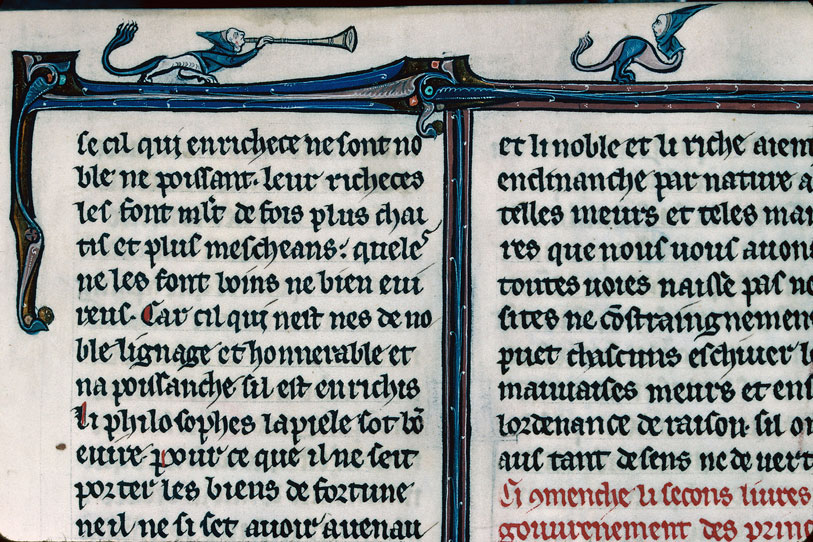 se cil qui enrichece ne sont no
ble ne poissant. leur richeces
les font mlt de fois plus chai
tis et plus mescheans: quele
ne les font boins ne bien eui
reus. Car cil qui nest nes de no
ble lignage et honnerable et
na poissanche sil est enrichis
li philosophes lapiele sot bō
eure. pour ce que il ne seit
porter les biens de fortune
ne il ne si set auoir auenau
et li noble et li riche aiem
enclinanche par nature a
telles meurs et teles mai
res que nous uous auons
toutes uoies naisse pas ne
sites ne cōstraingnemen
puet chascuns eschiuer l
mauuaises meurs et ens
lordenance de raison. sil on
aus tant de sens ne de uert
Ci ꝯmenche li secons liures
gouurenement des princ